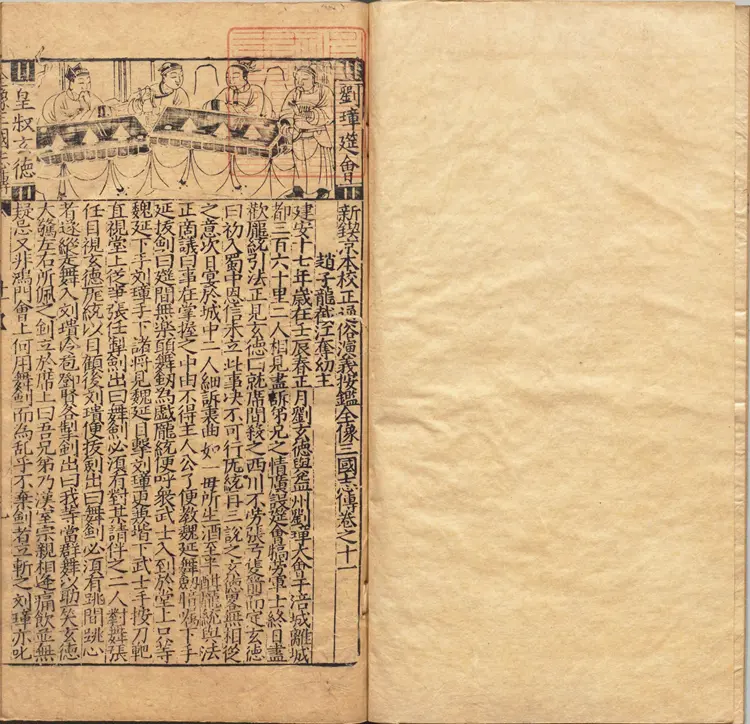 劉璋筵會
皇叔玄德
新鍥京本校正通俗演義按鑑全像三國志傳卷之十一
趙子龍截江奪幼主
建安十七年歲在壬辰春正月劉玄德與益州劉璋大會于涪城離城
都三百六十里二人相見盡訴弟兄之情廣設筵會犒勞軍士終日盡
歡龐統引法正見玄德曰就席間殺之西川不勞張弓隻箭而定玄德
曰初入蜀中恩信未立此事决不可行龐統再三說之玄德畧無相從
之意次日宴於城中二人細訴衷曲如一母所生酒至半酣龐統與法
正商議曰事在掌握之中由不得主人公了便教魏延舞劒下手
延拔劍曰筵間無樂願舞劒為戲龐統便呼衆武士入到於堂上只等
魏延下手刘璋手下諸將見魏延目擊刘璋更堦下武士手按刀靶
直視堂上從事張任掣劍出曰舞劍必須有對某請伴之二人對舞張
任目視玄德龐統以目顧後刘璝便拔劍出曰舞劍必須有跳間跳心
者遂縱走舞入刘璝冷苞鄧賢各掣劍出曰我等當群舞以助笑玄德
大驚左右所佩之劍立於席上曰吾兄弟乃漢室宗親相逢痛飲並無
疑忌又非鴻門會上何用舞劍而為亂乎不棄劍者立斬之刘璋亦叱
全像三國志傳